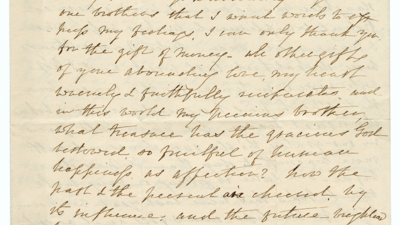 our brothers that I want words to ex
press my feelings. I can only thank you
for the gift of money - all other gifts
of your abounding love, my heart
warmly & faithfully reciprocates, and
in this world my precious brother,
what treasure has the gracious God
bestowed so fruitful of human
happiness as affection? how the
past & the present are cheered by
its influence, and the future brighten